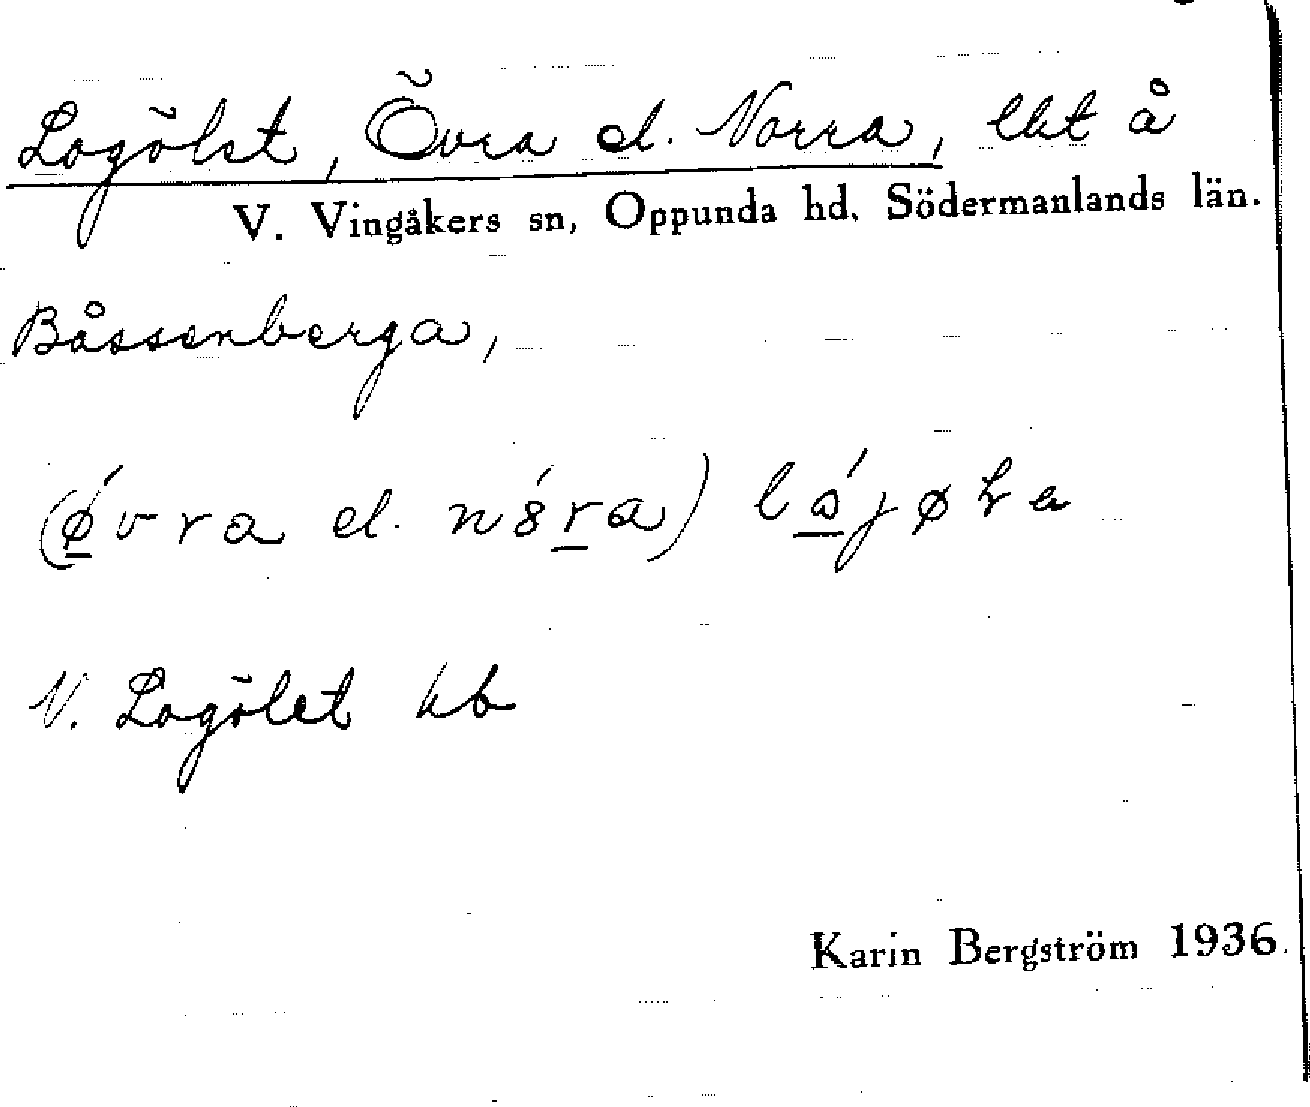 Logölet, Övra el. Norra, lht å
V. Vingåkers sn, Oppunda hd. Södermanlands län.
Båssenberga,
(ǿvra el. nɔ́ra)
N. Logölet hb
Karin Bergström 1936.